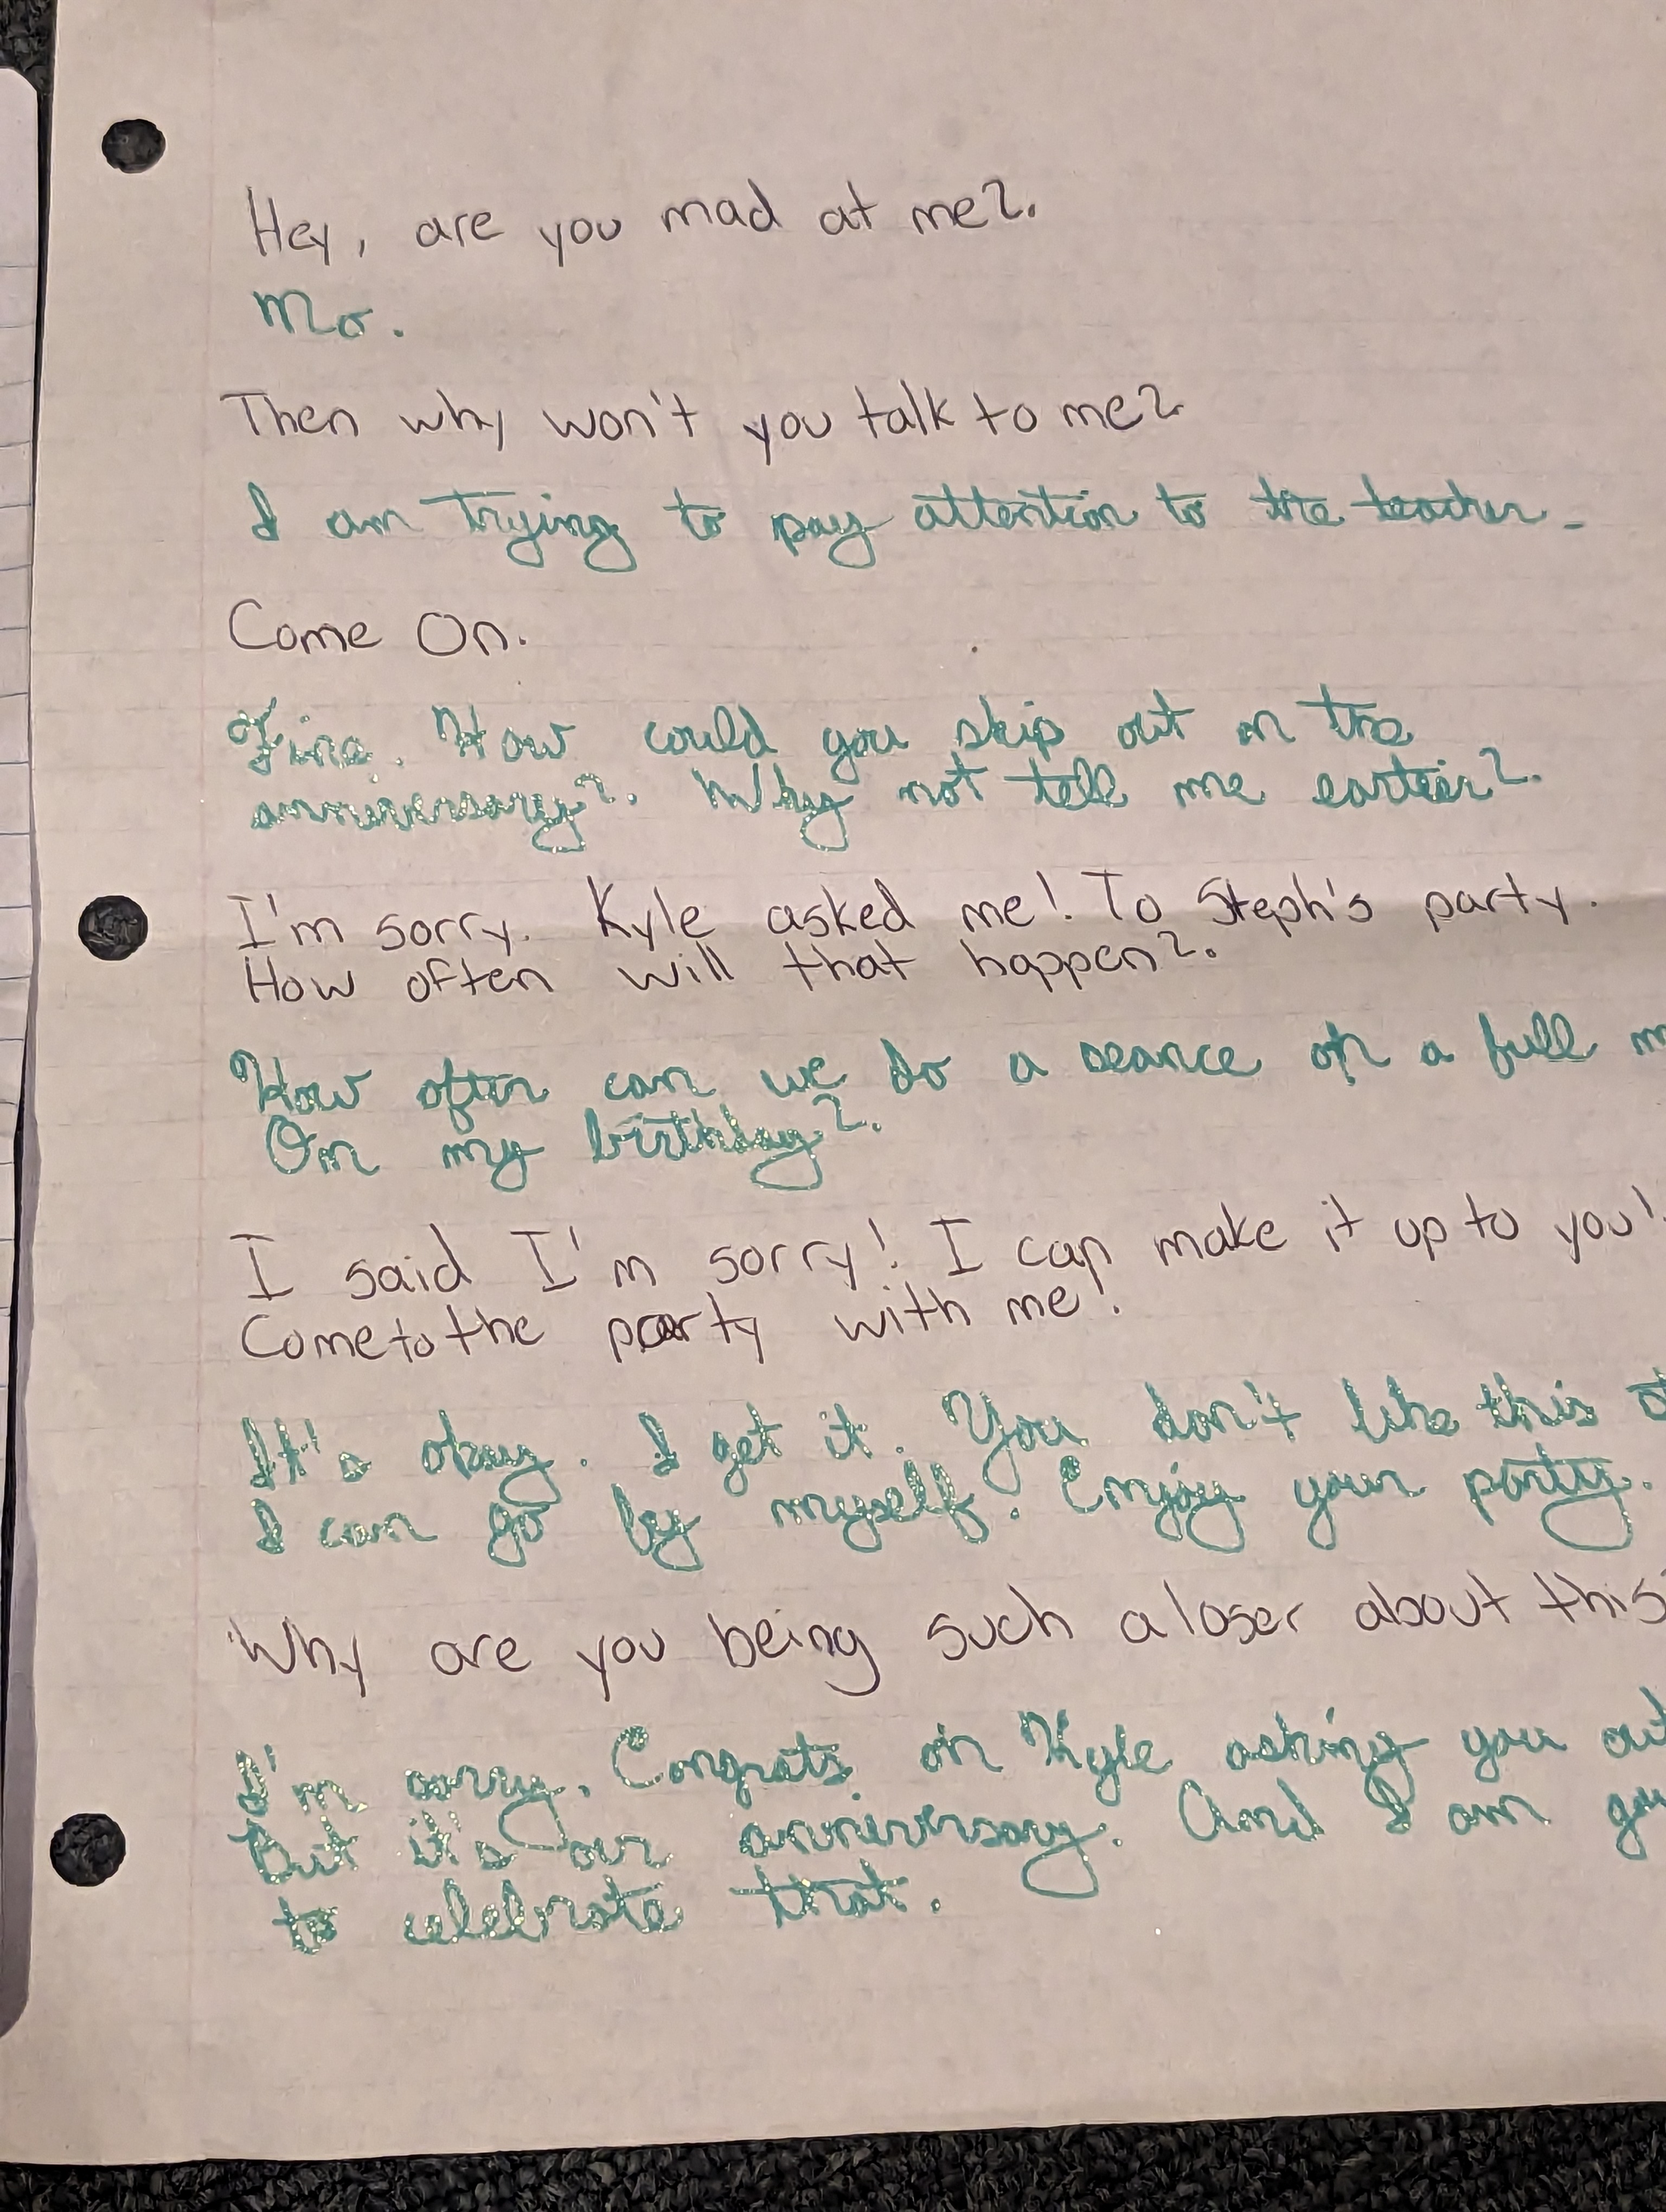 Hey, are you mad at me?.
No.
Then why won't you talk to me?
I am trying to pay attention to the teacher.
Come On.
Fine. How could you skip out on the
anniversary?. Why not tell me earlier?.
I'm sorry. Kyle asked me! To Steph's party.
How often will that happen?.
How often can we do a seance on a full
On my birthday?.
I said I'm sorry! I can make it up to you!
Come to the party with me!
It's okay. I get it. You don't like this
I can go by myself. Enjoy your party.
Why are you being such a loser about this
I'm sorry. Congrats on Kyle asking you out
But it's our anniversary. And I am
to celebrate that.